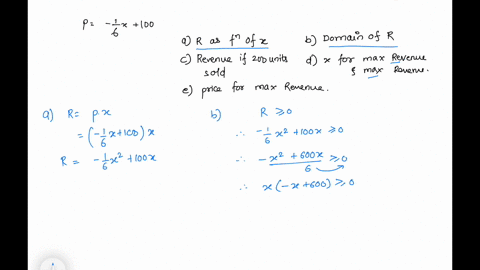 p = -1/6 x + 100
a) R as fⁿ of x
b) Domain of R
c) Revenue if 200 units sold
d) x for max Revenue & max Revenue.
e) price for max Revenue.
a) R = p.x
= (-1/6 x + 100) x
R = -1/6 x² + 100x
b) R ≥ 0
∴ -1/6 x² + 100x ≥ 0
∴ -x² + 600x / 6 ≥ 0
∴ x(-x + 600) ≥ 0